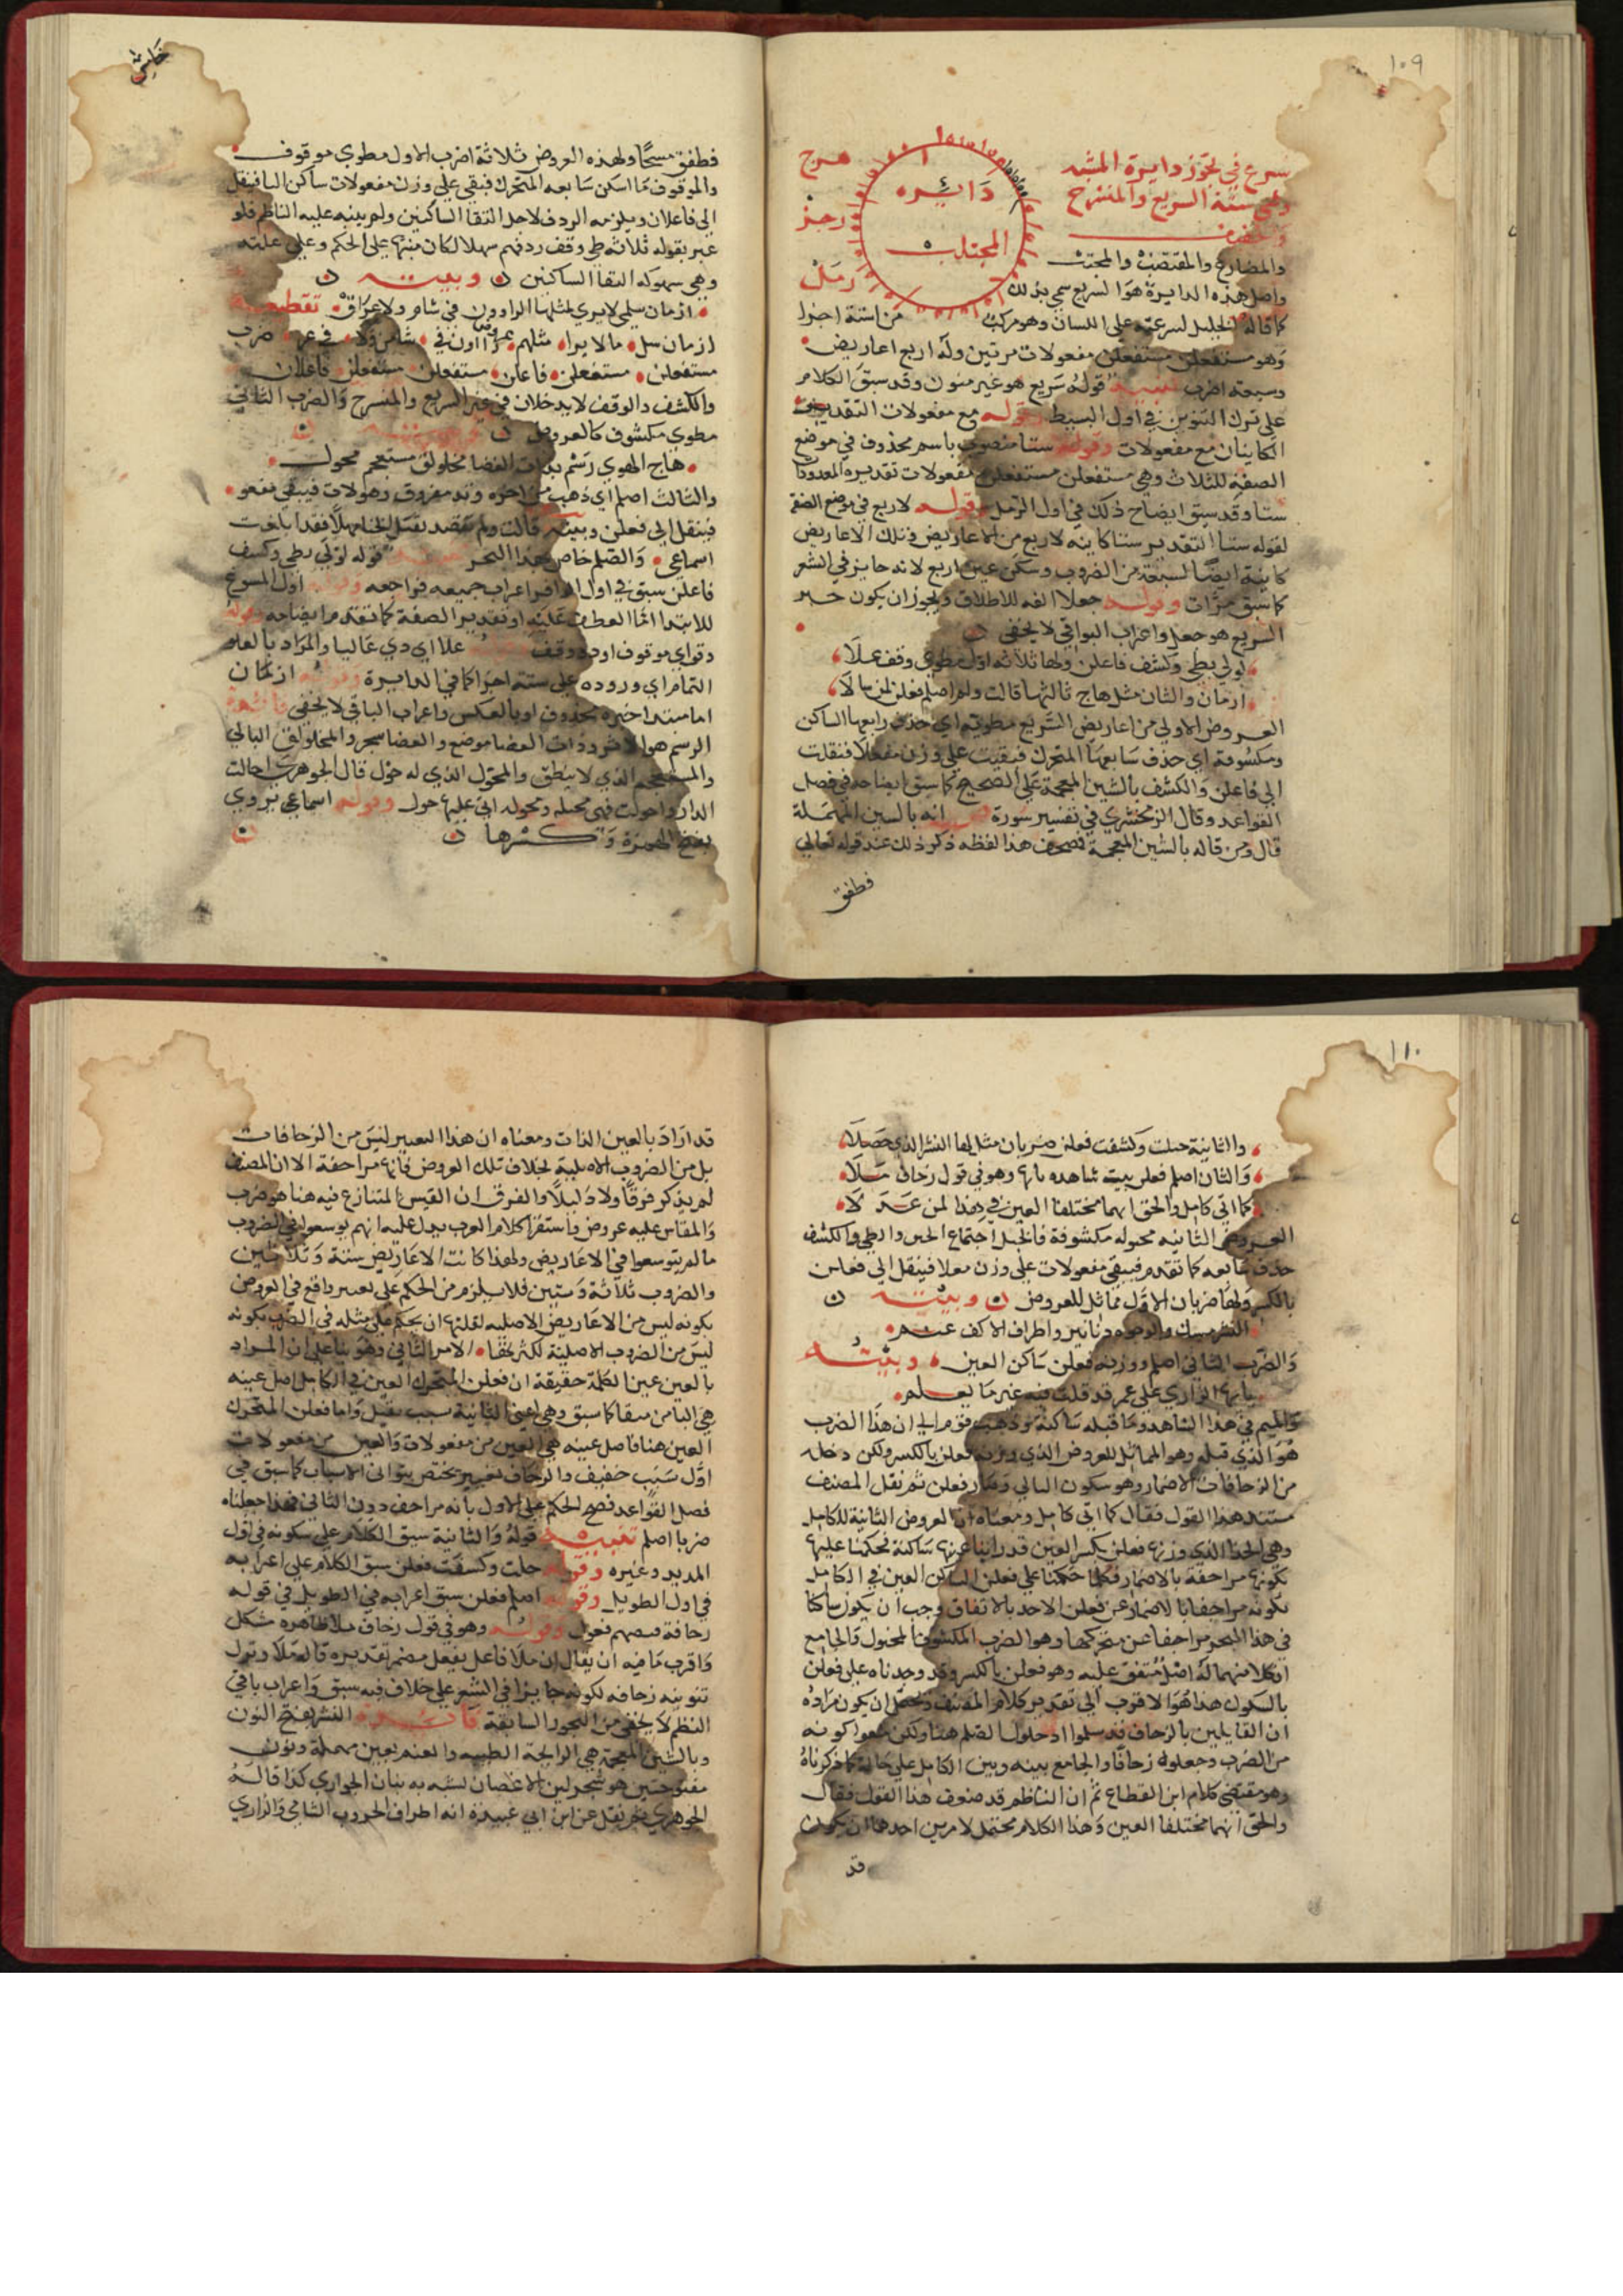 ١٠٩
شرع في بحور دايرة المشتبه
وهي ستة السريع والمنسرح
والخفيف
والمضارع والمقتضب والمجتث
واصل هذه الدايرة هو السريع سمي بذلك
دايره
المجتلب
هزج
رجز
رمل
كما قاله الخليل لسرعته على اللسان وهو مركب من ستة اجزا
وهو مستفعلن مستفعلن مفعولات مرتين وله اربع اعاريض
وسبعة اضرب قوله سريع هو غير منون وقد سبق الكلام
على ترك التنوين في اول البسيط وقوله مع مفعولات التقدير
الكاينان مع مفعولات وقوله ستا منصوب باسم محذوف في موضع
الصفة للثلاث وهي مستفعلن مستفعلن مفعولات تقديره المعدودات
ستا وقد سبق ايضاح ذلك في اول الرمل وقوله لاربع في موضع الصفة
لقوله ستا التقدير ستا كاينة لاربع من الاعاريض وتلك الاعاريض
كاينة ايضا لسبعة من الضروب وسكن عين اربع لانه جايز في الشعر
كما سبق مرات وقوله جعلا الفه للاطلاق ويجوز ان يكون خبر
السريع هو جعل واعراب البواقي لا يخفى
لولى بطي وكشف فاعلن ولها ثلاثة اول مطوي وقف علا
ازمان والثان مثل هاج ثالثها قالت ولم اصلم فعلن لمن سالا
العروض الاولى من اعاريض السريع مطوية اي حذف رابعها الساكن
ومكشوفة اي حذف سابعها المتحرك فبقيت على وزن مفعلا فنقلت
الى فاعلن والكشف بالشين المعجمة على الصحيح كما سبق ايضاحه في فصل
القواعد وقال الزمخشري في تفسير سورة ص انه بالسين المهملة
قال ومن قاله بالشين المعجمة فصحف هذا لفظه ذكر ذلك عند قوله تعالى
فطفق
فطفق مسحا ولهذه العروض ثلاثة اضرب الاول مطوي موقوف
والموقوف ما اسكن سابعه المتحرك فبقي على وزن مفعولات ساكن التا فينقل
الى فاعلان ويلزمه الردف لاجل التقا الساكنين ولم ينبه عليه الناظم فلو
عبر بقوله ثلاثة طي وقف ردفهم سهلا لكان منبها على الحكم وعلى علته
وهي سهولة التقا الساكنين وبيته
ازمان سلمى لا يرى مثلها الراوون في شام ولا عراق تقطيعه
ازمان سل مالا يرا مثلهر راوون في شامن ولا في عراق ضرب
مستفعلن مستفعلن فاعلن مستفعلن مستفعلن فاعلان
والكشف والوقف لا يدخلان في غير السريع والمنسرح والضرب الثاني
مطوي مكشوف كالعروض
هاج الهوى رسم بذات الغضا مخلولق مستعجم محول
والثالث اصلم اي ذهب من اخره وتد مفروق وهو لات فيبقى مفعو
فينقل الى فعلن وبيته قالت ولم تقصد لقيل الخنا مهلا فقد ابلغت
اسماعي والصلم خاص بهذا البحر قوله لولى بطي وكشف
فاعلن سبق في اول الوافر اعراب جميعه فراجعه وقوله اول المسوغ
للابتدا اما العطف عليه او تقدير الصفة كما تقدم ايضاحه قوله
وقف اي موقوف او ذو وقف علا اي ذي عاليا والمراد بالعلو
التمام اي وروده على ستة اجزا كما في الدايرة وقوله ازمان
اما مبتدا خبره محذوف او بالعكس واعراب الباقي لا يخفى فائدة
الرسم هو الاثر وذات الغضا موضع والغضا شجر والمخلولق البالي
والمستعجم الذي لا ينطق والمحول الذي له حول قال الجوهري احالت
الدار واحولت فهي محيلة ومحولة اتى عليها حول وقوله اسماعي يروى
بفتح الهمزة وكسرها
١١٠
والثانية خبلت وكشفت فعلن ضربان مثل لها النشر الذي حصلا
والثان اصلم فعلن بيت شاهده يايها وهو في قول زحاف ملا
كما اتى كامل والحق انهما مختلفا العين في هذا لمن عقلا
العروض الثانية مخبولة مكشوفة فالخبل اجتماع الخبن والطي والكشف
حذف سابعه كما تقدم فيبقى مفعولات على وزن معلا فينقل الى فعلن
بالكسر ولها ضربان الاول مماثل للعروض وبيته
النشر مسك والوجوه دنانير واطراف الاكف عنم
والضرب الثاني اصلم ووزنه فعلن ساكن العين وبيته
يايها الزاري على عمر قد قلت فيه غير ما تعلم
والميم في هذا الشاهد وما قبله ساكنة وذهب قوم الى ان هذا الضرب
هو الذي قبله وهو المماثل للعروض الذي وزنه فعلن بالكسر ولكن دخله
من الزحافات الاضمار وهو سكون الثاني وصار فعلن ثم نقل المصنف
مستند هذا القول فقال كما اتى كامل ومعناه ان العروض الثانية للكامل
وهي الحذا الذي وزنها فعلن بكسر العين قد راينا عينها ساكنة فحكمنا عليها
بكونها مزاحفة بالاضمار فكما حكمنا على فعلن الساكن العين في الكامل
بكونه مزاحفا بالاضمار عن فعلن الاحد بالاتفاق وجب ان يكون ساكنا
في هذا البحر مزاحفا عن متحركها وهو الضرب المكشوف المخبول والجامع
ان كلا منهما له اصل متفق عليه وهو فعلن بالكسر وقد وجدناه على فعلن
بالسكون هذا هو الاقرب الى تقدير كلام المصنف ويحتمل ان يكون مراده
ان القايلين بالزحاف قد سلموا دخول الصلم هنا ولكن منعوا كونه
من الضرب وجعلوه زحافا والجامع بينه وبين الكامل على حاله كما ذكرناه
وهو مقتضى كلام ابن القطاع ثم ان الناظم قد ضعف هذا القول فقال
والحق انهما مختلفا العين وهذا الكلام محتمل لامرين احدهما ان يكون
قد
قد اراد بالعين الذات ومعناه ان هذا التغيير ليس من الزحافات
بل من الضروب الاصلية بخلاف تلك العروض فانها مزاحفة الا ان المصنف
لم يذكر فرقا ولا دليلا والفرق ان القيس المتنازع فيه هنا هو ضرب
والمقاس عليه عروض واستقرا كلام العرب يدل عليه انهم توسعوا في الضروب
ما لم يتوسعوا في الاعاريض ولهذا كانت الاعاريض ستة وثلاثين
والضروب ثلاثة وستين فلا يلزم من الحكم على تغيير واقع في العروض
بكونه ليس من الاعاريض الاصلية لقلتها ان يحكم على مثله في الضرب بكونه
ليس من الضروب الاصلية لكثرتها الامر الثاني وهو بنا على ان المراد
بالعين عين الكلمة حقيقة ان فعلن المتحرك العين في الكامل اصل عينه
هي التا من متفا كما سبق وهي اعني الثانية سبب ثقيل واما فعلن المتحرك
العين هنا فاصل عينه هي العين من مفعولات والعين من مفعولات
اول سبب خفيف والزحاف تغيير يختص بثواني الاسباب كما سبق في
فصل القواعد فصح الحكم على الاول بانه مزاحف دون الثاني فلهذا جعلناه
ضربا اصلم تنبيه قوله والثانية سبق الكلام على سكونه في اول
المديد وغيره وقوله خبلت وكشفت فعلن سبق الكلام على اعرابه
في اول الطويل وقوله اصلم فعلن سبق اعرابه في الطويل في قوله
زحافة قبضهم فعول وقوله وهو في قول زحاف ملا ظاهره شكل
واقرب ما فيه ان يقال ان ملا فاعل بفعل مضمر تقديره قاله ملا وترك
تنوينه زحافه لكونه جايزا في الشعر على خلاف فيه سبق واعراب باقي
النظم لا يخفى من البحور السابقة فائدة النشر بفتح النون
وبالشين المعجمة هي الرايحة الطيبة والعنم بعين مهملة ونون
مفتوحتين هو شجر لين الاغصان تشبه به بنان الجواري كذا قاله
الجوهري ثم نقل عن ابن ابي عبيدة انه اطراف الخروب الشامي والزاري